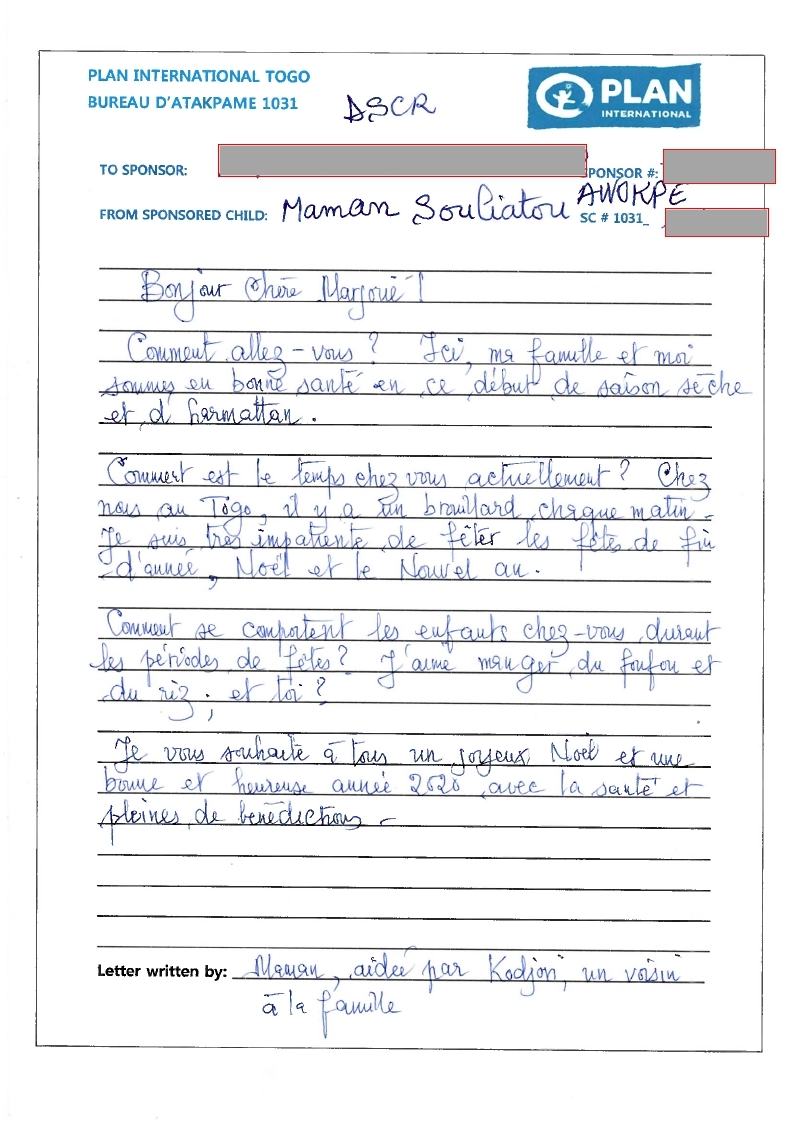 PLAN INTERNATIONAL TOGO
BUREAU D'ATAKPAME 1031
DSCR
PLAN
INTERNATIONAL
TO SPONSOR:
PONSOR #:
FROM SPONSORED CHILD: Maman Souliatou AWOKPE
SC # 1031_
Bonjour Chère !
Comment allez-vous ? Ici, ma famille et moi
sommes en bonne santé en ce début de saison sèche
et d'harmattan.
Comment est le temps chez vous actuellement ? Chez
nous au Togo, il y a un brouillard chaque matin.
Je suis très impatiente de fêter les fêtes de fin
d'année, Noël et le Nouvel an.
Comment se comportent les enfants chez-vous durant
les périodes de fêtes ? J'aime manger du foufou et
du riz ; et toi ?
Je vous souhaite à tous un joyeux Noël et une
bonne et heureuse année 2020 avec la santé et
pleines de bénédictions.
Letter written by: Maman, aidée par Kodjori, un voisin
à la famille